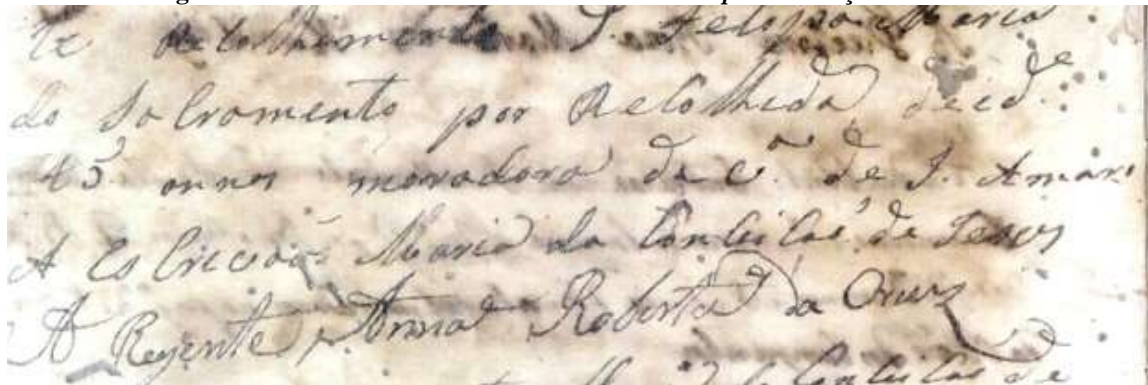 te Recolhimento D. Felipa Maria
do Sacramento por Recolhida de id.e
45 annos moradora da c.a de S. Amaro
A Escrivaõ Maria da Conceicaõ de Jesus
A Regente Anna Roberta da Crus
Conceicaõ de